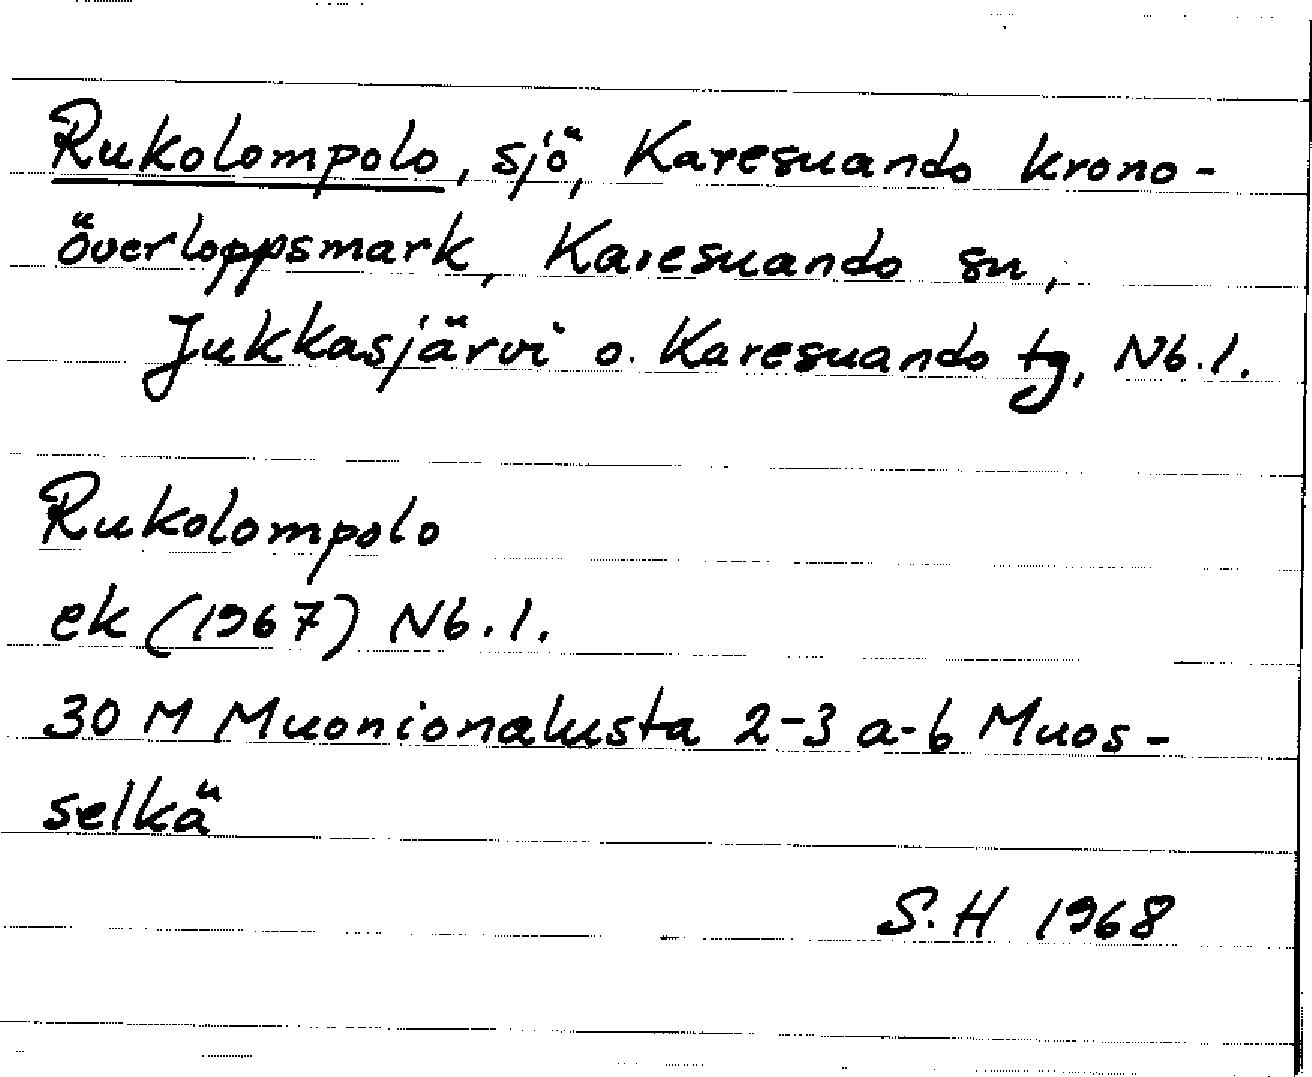 Rukolompolo, sjö, Karesuando krono-
överloppsmark, Karesuando sn,
Jukkasjärvi o. Karesuando tg, Nb.l.
Rukolompolo
ek (1967) Nb.l.
30 M Muonionalusta 2-3 a-b Muos-
selkä
S.H 1968